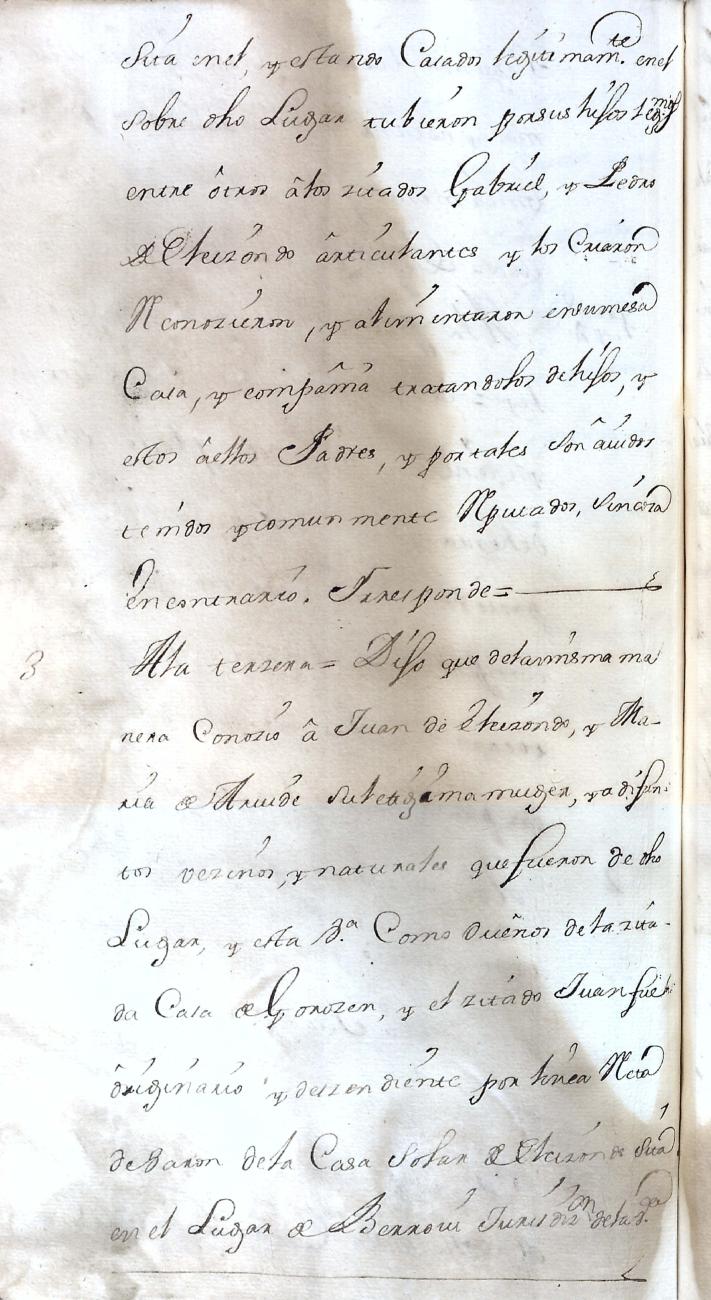 sita en el, y estando Casados legitimam.te en el
sobre dho Lugar tubieron por sus hijos legmos
entre ôtros â los zitados Gabriel, y Pedro
de Eleizondo ârticulantes y los Criaron
Reconozieron, y alimentaron en su mesa
Casa, y compâñia tratandolos de hijos, y
estos âellos Padres, y por tales son âuidos
tenidos y comunmente Reputados, sin cosa
en contrario. Y responde=
3 A la terzera= Dijo que de la misma ma
nera Conozio â Juan de Eleizondo, y Ma-
ria de Arrude su legitima muger, ya difun-
tos vezinos, y naturales que fueron de dho
Lugar, y esta V.a Como dueños de la zita-
da Casa de Gorozen, y el zitado Juan fue
ôriginario y deszendiente por linea Recta
de Baron de la Casa Solar de Eleizondo sita
en el Lugar de Berroui Jurisdizon de la d.ha